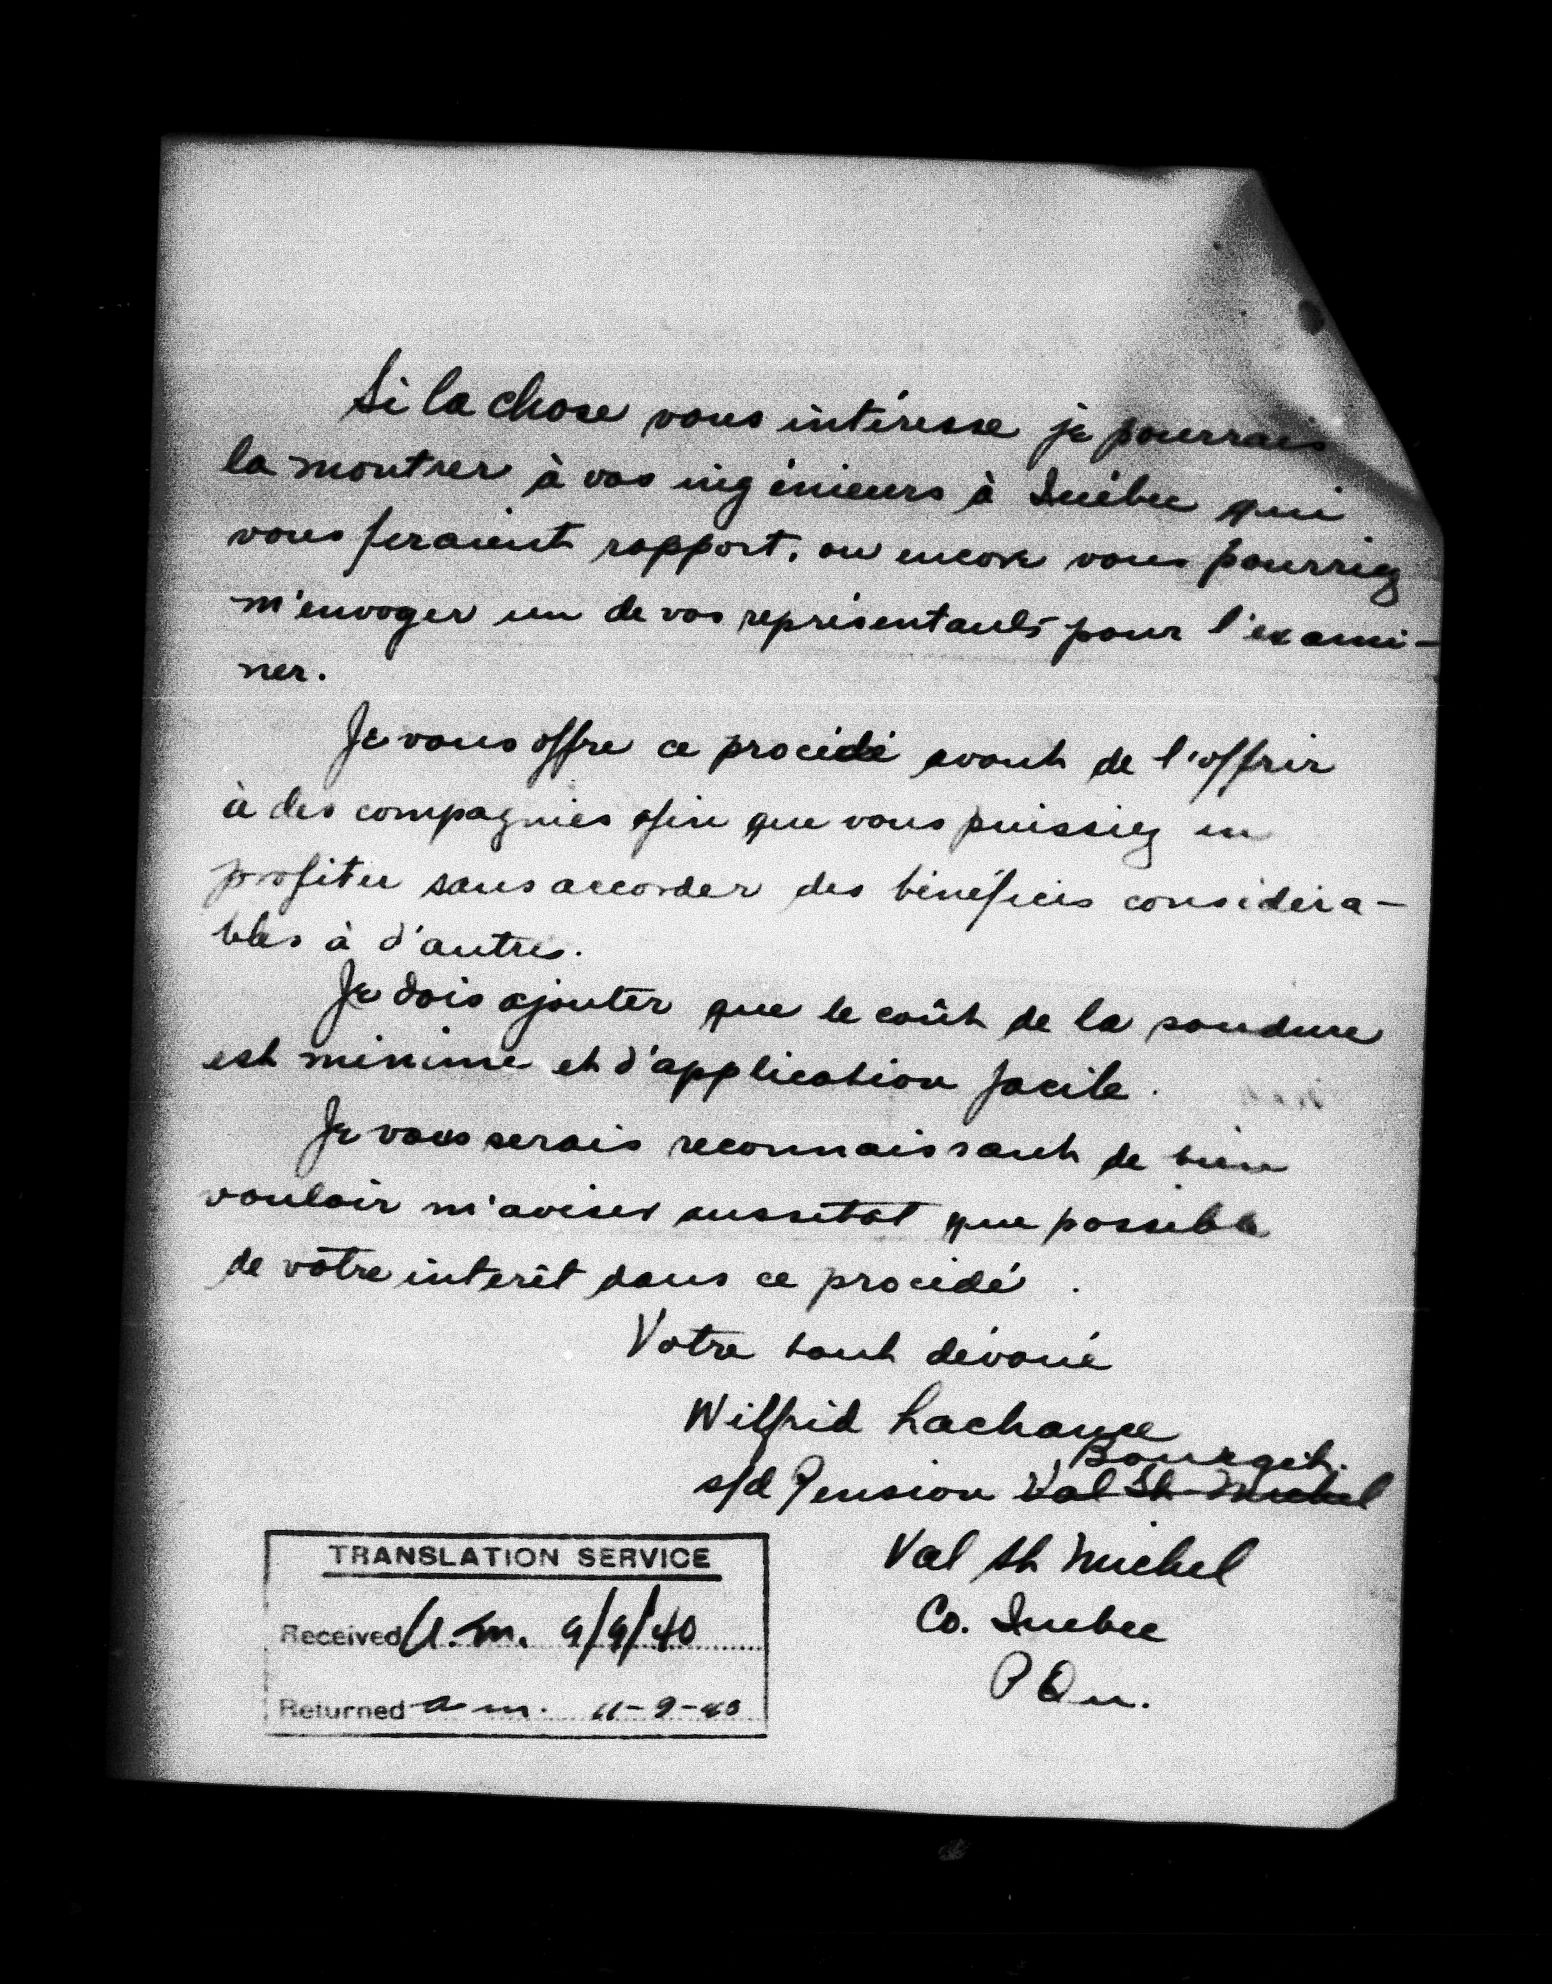 Si la chose vous intéresse je pourrais
la montrer à vos ingénieurs à Québec qui
vous feraient rapport, ou encore vous pourriez
m'envoyer un de vos représentants pour l'exami-
ner.
Je vous offre ce procédé avant de l'offrir
à des compagnies afin que vous puissiez en
profiter sans accorder des bénéfices considéra-
bles à d'autres.
Je dois ajouter que le coût de la soudure
est minime et d'application facile.
Je vous serais reconnaissant de bien
vouloir m'aviser aussitôt que possible
de votre intérêt dans ce procédé.
Votre tout dévoué
Wilfrid Lachance
Bourget.
s/d Pension Val St-Michel
Val St Michel
Co. Québec
P Qu.
TRANSLATION SERVICE
Received A.M. 9/9/40
Returned a m. 11-9-40